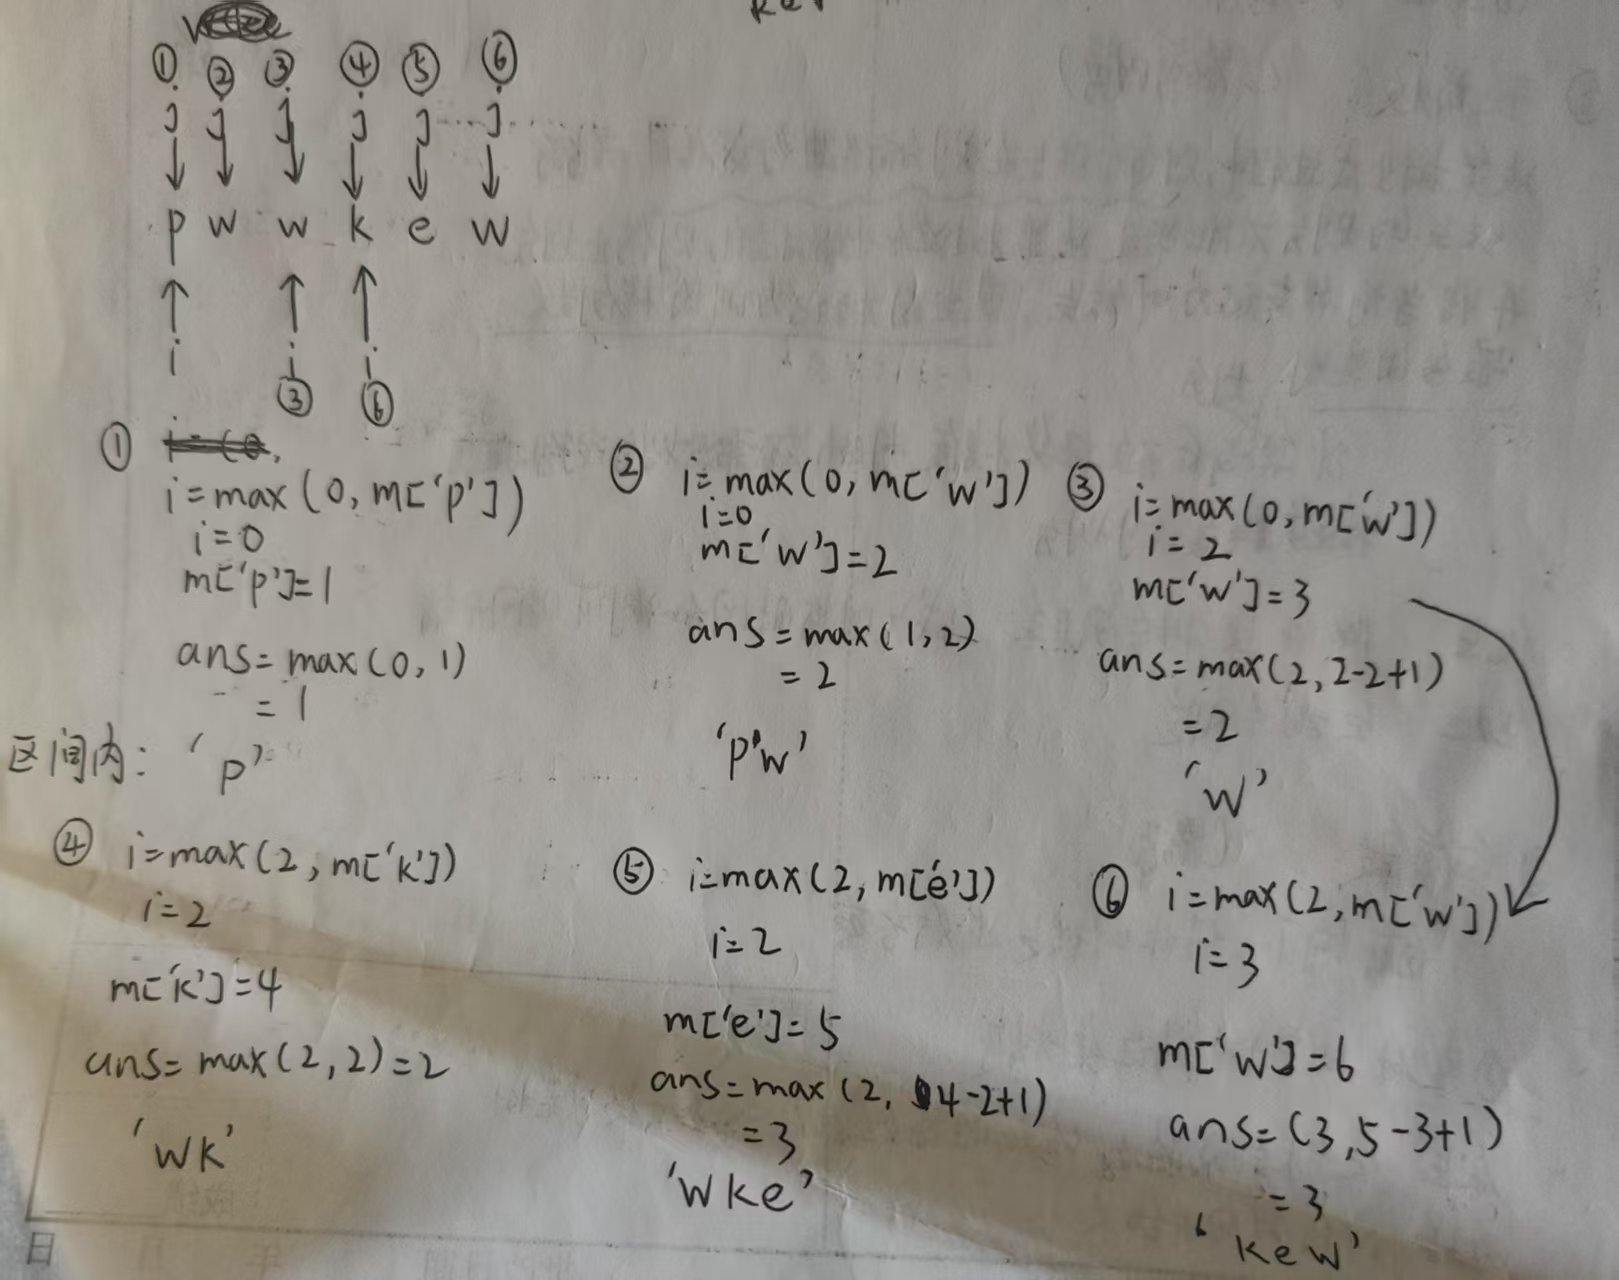 ① ② ③ ④ ⑤ ⑥
j j j j j j
p w w k e w
i i i
③ ⑥
①
i=max(0, m['p'])
i=0
m['p']=1
ans=max(0,1)
=1
区间内: 'p'
②
i=max(0, m['w'])
i=0
m['w']=2
ans=max(1,2)
=2
'p'w'
③
i=max(0, m['w'])
i=2
m['w']=3
ans=max(2,2-2+1)
=2
'w'
④
i=max(2, m['k'])
i=2
m['k']=4
ans=max(2,2)=2
'wk'
⑤
i=max(2, m['e'])
i=2
m['e']=5
ans=max(2, 4-2+1)
=3
'wke'
⑥
i=max(2, m['w'])
i=3
m['w']=6
ans=(3,5-3+1)
=3
'kew'
日